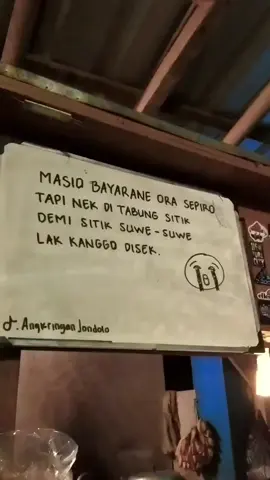 MASIO BAYARANE ORA SEPIRO
TAPI NEK DI TABUNG SITIK
DEMI SITIK SUWE-SUWE
LAK KANGGO DISEK.
Angkringan Jondolo